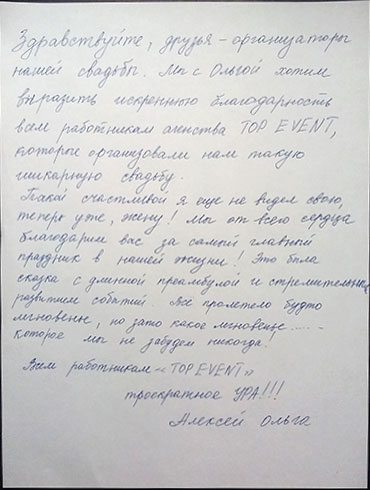 Здравствуйте, друзья - организаторы
нашей свадьбы. Мы с Ольгой хотим
выразить искреннюю благодарность
всем работникам агенства TOP EVENT,
которые организовали нам такую
шикарную свадьбу.
Такой счастливой я еще не видел свою,
теперь уже, жену! Мы от всего сердца
благодарим вас за самый главный
праздник в нашей жизни! Это была
сказка с длинной преамбулой и стремительным
развитием событий. Все пролетело будто
мгновенье, но зато какое мгновенье......
которое мы не забудем никогда!
Всем работникам «TOP EVENT»
троекратное УРА!!!
Алексей Ольга